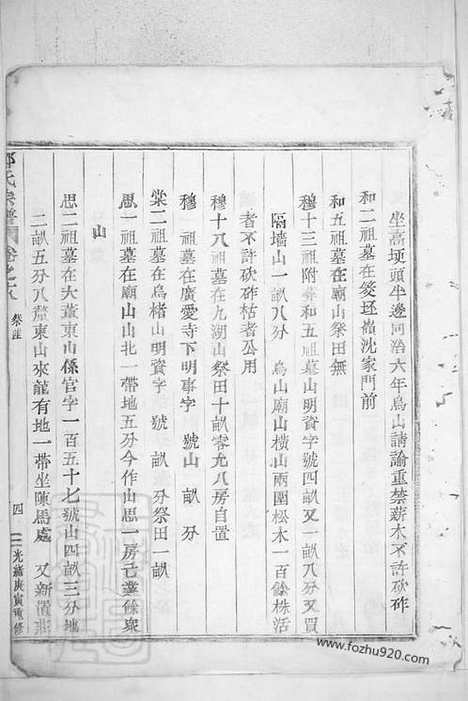 坐落埂頭半邊同治六年烏山請諭重禁薪木不許砍砟
和二祖墓在筊坯嶺沈家門前
和五祖墓在廟山祭田無
穆十三祖附葬和五祖墓山明資字號四畝又一畝八分又買
隔墻山一畝八分 烏山廟山橫山兩圍松木一百餘株活
者不許砍砟枯者公用
穆十八祖墓在九湖山祭田十畝零九八房自置
穆 祖墓在廣愛寺下明事字 號山 畝 分
棠二祖墓在烏楮山明資字 號 畝 分祭田一畝
思一祖墓在廟山山北一帶地五分今作山思一房已葬餘衆
山
思二祖墓在大董東山係官字一百五十七號山四畝三分地
二畝五分八釐東山來龍有地一帶坐陳馬處 又新置
氏宗譜 卷之六 祭產 四 光緒庚寅重修
www.fozhu920.com